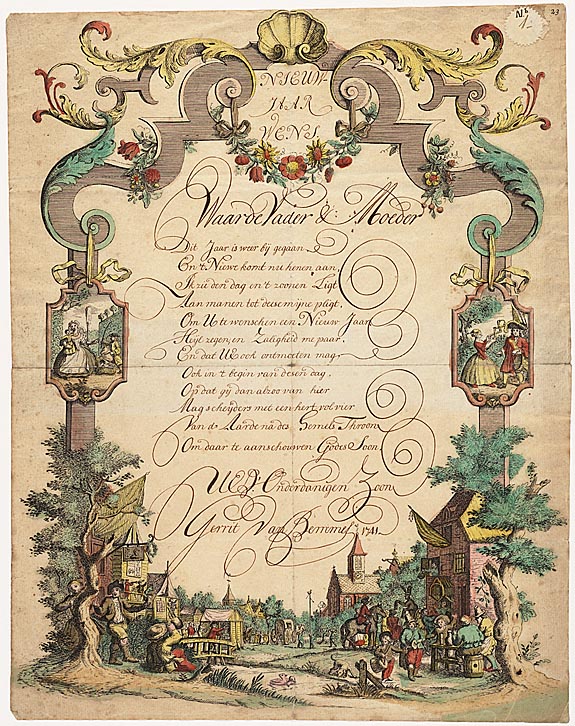 N.6
1
23
NIEUW-
JAAR
WENS.
Waarde Vader & Moeder
Dit Jaar is weer bij gegaan.
En 't Niewe komt nu henen aan,
Ik zie den dag en 't zoonen Ligt
Aan manen tot deese mijne pligt,
Om U te wenschen een Nieuw Jaar
Heyl zegen, en Zaligheid me paar.
En dat U ook ontmoeten mag
Ook in 't begin van desen dag.
Op dat gij dan alzoo van hier
Mag scheijden met een hert vol vier
Van d' Aarde na des Hemels Throon
Om daar te aanschouwen Godes Soon.
UED Onderdanigen Zoon
Gerrit Van Bemmel 1741.